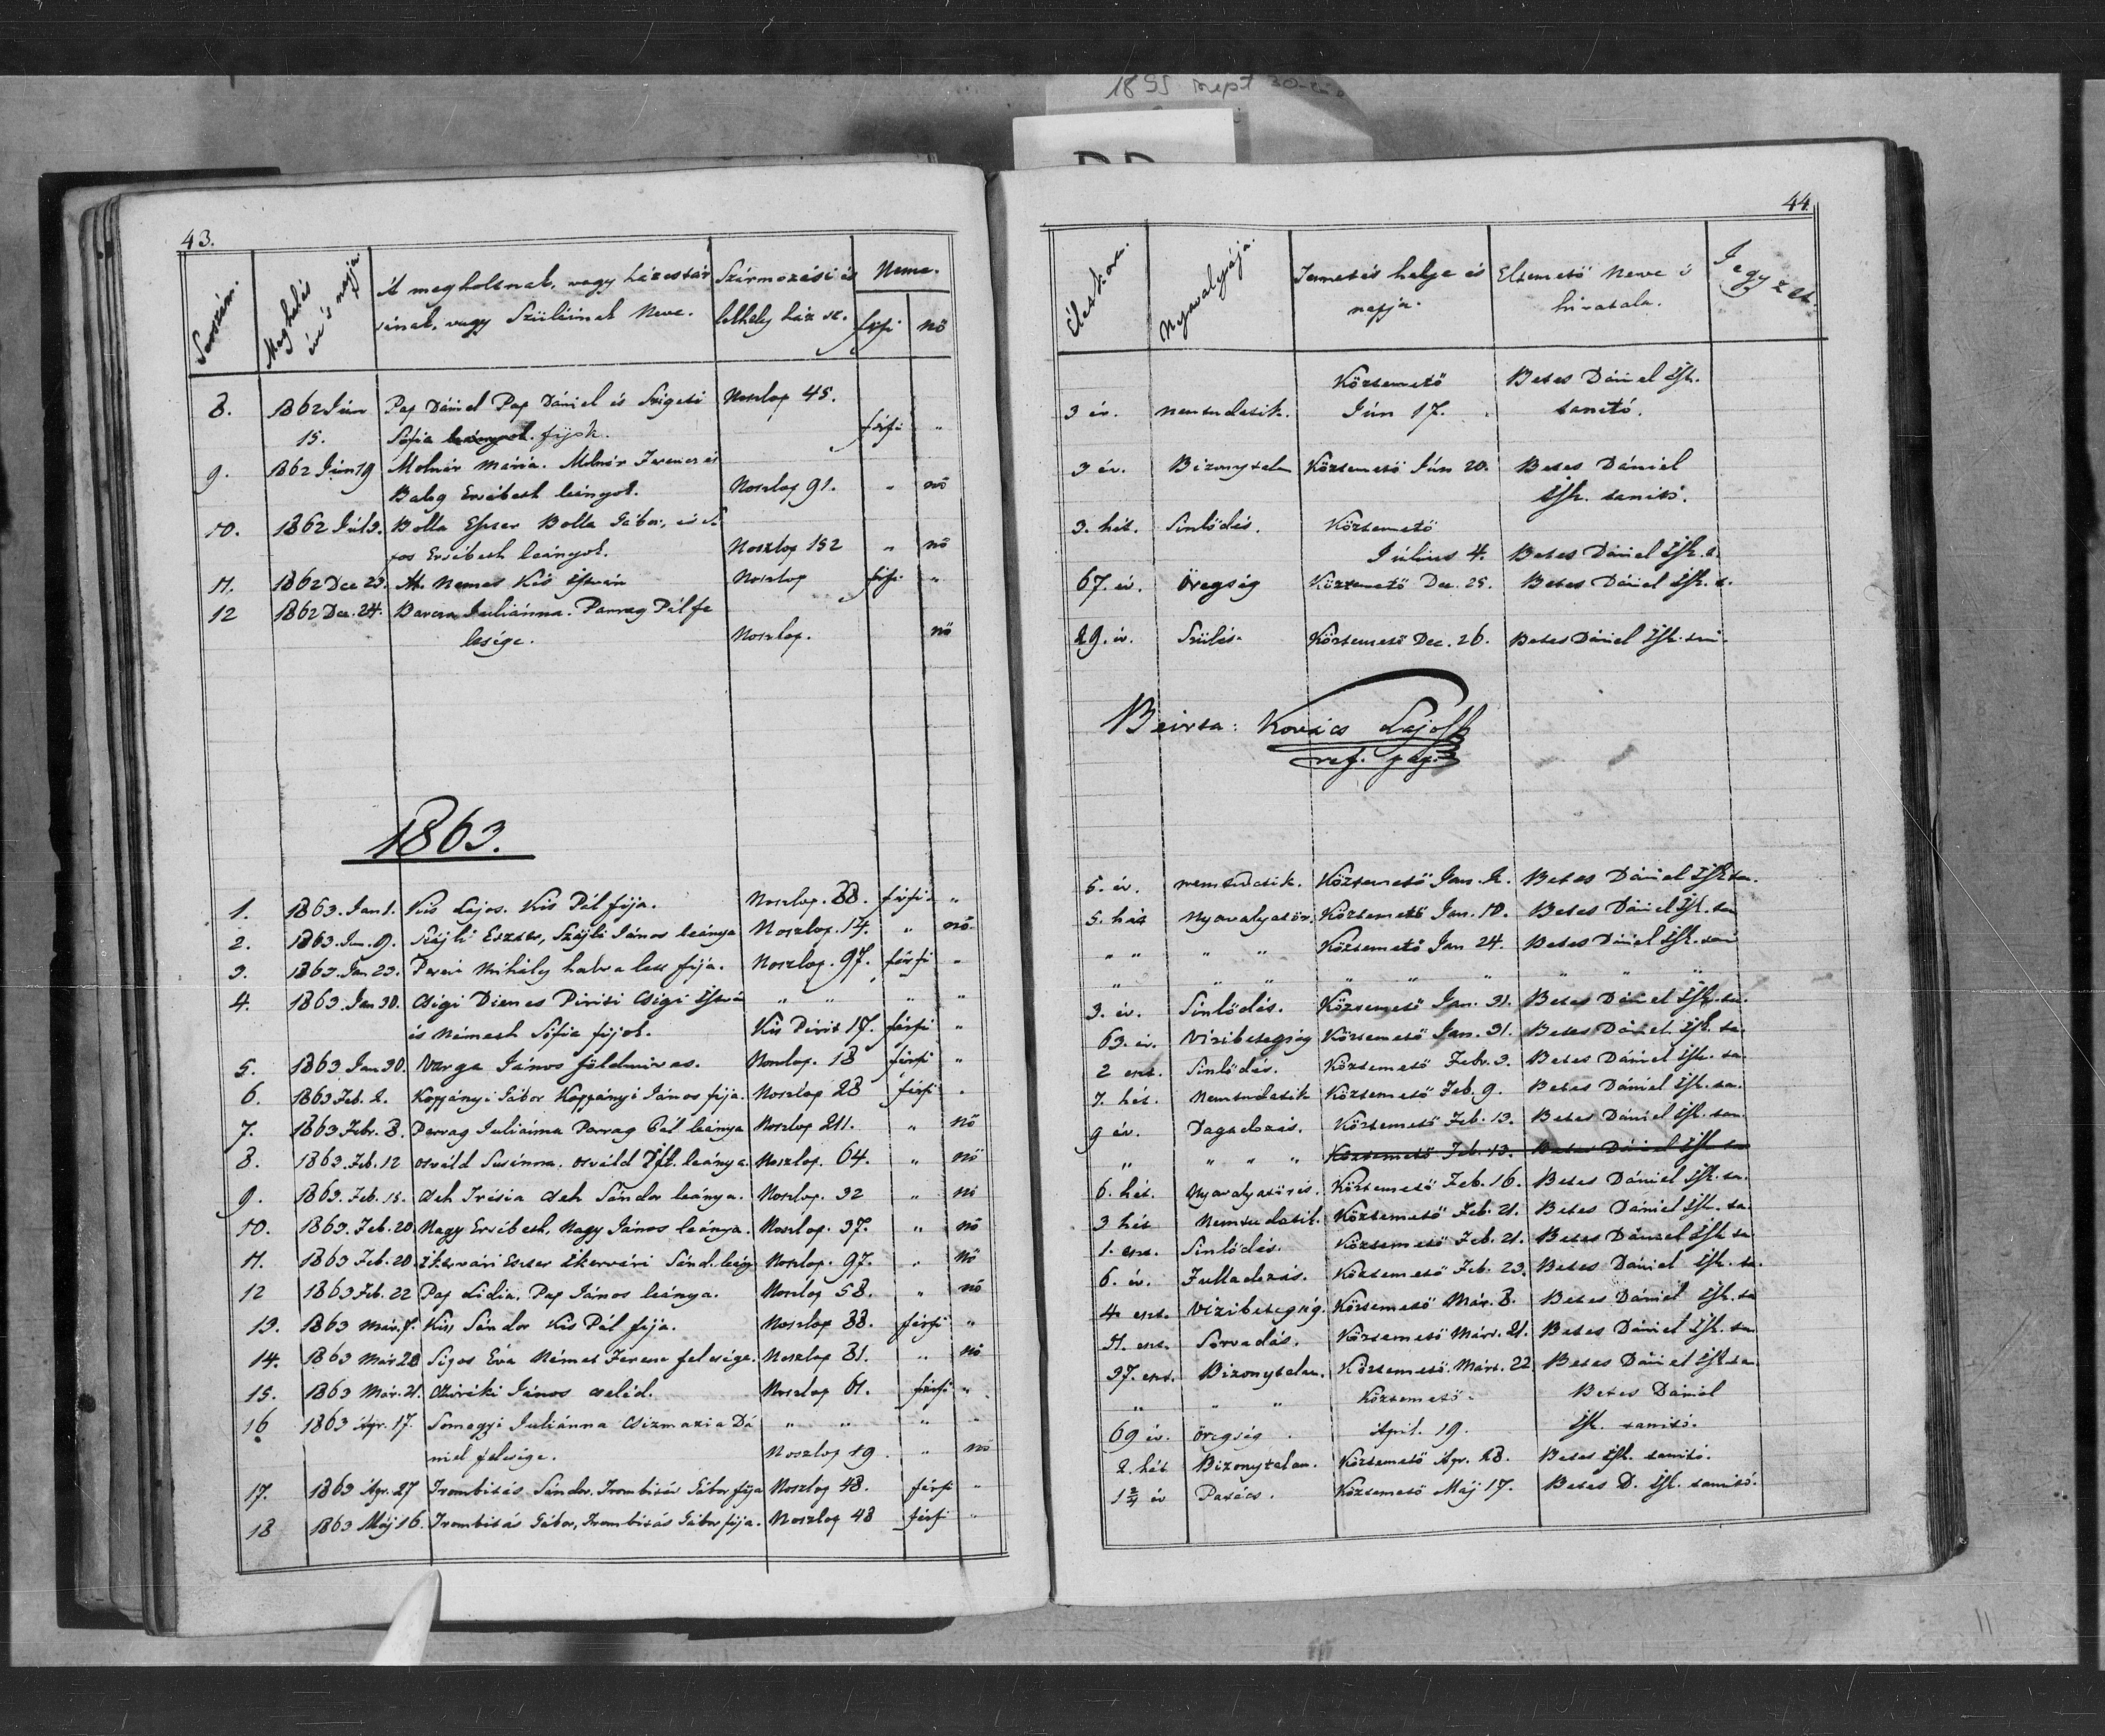 1855 sept 30-
43.
Sorszám.
Meghalás éve 's napja.
A megholtnak, vagy házastár
sának, vagy Szüléinek Neve.
Származási és
lakhely ház sz.
Neme.
férfi
nő
8. 1862 Jún 15. Pap Dániel Pap Dániel és Szigeti Noszlop 45.
Sófia fijok. férfi "
9. 1862 Jún 19 Molnár Mária. Molnár Ferencz és
Balog Ersébeth leányok. Noszlop 91. " nő
10. 1862 Júl 3. Bolla Eszter Bolla Gábor, és
Ersébeth leányok. Noszlop 152 " nő
11. 1862 Dec 23. Nemes Kis István Noszlop férfi "
12 1862 Dec. 24. Juliánna. Parrag Pál fe
lesége. Noszlop. nő
1863.
1. 1863. Jan 1. Kis Lajos. Kis Pál fija. Noszlop. 88. férfi "
2. 1863. Jan. 9. Szájli Eszter, Szájli János leánya Noszlop. 14. " nő.
3. 1863. Jan 23. Mihály halva lett fija. Noszlop. 97. férfi "
4. 1863. Jan 30. Csigi Dienes Piriti Csigi " " " "
és Németh Sófia fijok. Kis Pirit 17. férfi "
5. 1863. Jan 30. Varga János földmives. Noszlop. 18 férfi "
6. 1863 Feb. 2. Koppányi Gábor Koppányi János fija. Noszlop 28 férfi "
7. 1863 Febr. 8. Parrag Juliánna Parrag Pál leánya Noszlop 211. " nő
8. 1863. Feb. 12 Osváld Susánna. Osváld leánya. Noszlop. 64. " nő
9. 1863. Feb. 15. Cseh Trésia Cseh Sándor leánya. Noszlop. 32 " nő
10. 1863. Feb. 20. Nagy Ersébeth, Nagy János leánya. Noszlop. 37. " nő
11. 1863 Feb. 20. Ikervári Eszter Ikervári Sánd. Noszlop. 97. " nő
12 1863 Feb. 22 Pap Lidia. Pap János leánya. Noszlop 58. " nő
13. 1863 Már. 7. Kis Sándor Kis Pál fija. Noszlop 88. férfi "
14. 1863 Már 20 Sigos Éva Német Ferenc felesége. Noszlop 81. " nő
15. 1863 Már. 21. János cseléd. Noszlop 61. férfi "
16 1863 Apr. 17. Somogyi Juliánna Csizmazia Dá " " " "
niel felesége. Noszlop 19. " nő
17. 1863 Apr. 27 Trombitás Sándor. Trombitás Gábor fija Noszlop 48. férfi "
18 1863 Máj 16. Trombitás Gábor, Trombitás Gábor fija. Noszlop 48 férfi "
44.
Élet kora.
Nyavalyája.
Temetés helye és
napja.
Eltemető Neve és
hivatala.
Jegyzet.
Köztemető Betes Dániel Isk.
3 év. nem tudatik. Jún 17. tanító.
3 év. Bizonytalan Köztemető Jún 20. Betes Dániel
Isk. tanító.
3. hét. Sinlődés. Köztemető
Július 4. Betes Dániel Isk. t.
67. év. Öregség Köztemető Dec. 25. Betes Dániel Isk. t.
29. év. Szülés. Köztemető Dec. 26. Betes Dániel Isk. tani.
Beirta: Kovács Lajos
ref. pap.
5. év. nem tudatik. Köztemető Jan. 2. Betes Dániel Isk. ta.
5. hét Nyavalyatör. Köztemető Jan. 10. Betes Dániel Isk. tan
" " " " Köztemető Jan 24. Betes Dániel Isk. tani
" " " " " " " " "
3. év. Sinlődés. Köztemető Jan. 31. Betes Dániel Isk. ta.
63. év. Vizibetegség Köztemető Jan. 31. Betes Dániel Isk. ta.
2 eszt. Sinlődés. Köztemető Febr. 3. Betes Dániel Isk. ta
7. hét. Nemtudatik Köztemető Feb. 9. Betes Dániel Isk. ta.
9 év. Dagadozás. Köztemető Feb. 13. Betes Dániel Isk. tan
" " " " Köztemető Feb. 13. Betes Dániel Isk. ta
6. hét. Nyavalyatörés. Köztemető Feb. 16. Betes Dániel Isk. ta.
3 hét Nemtudatik. Köztemető Feb. 21. Betes Dániel Isk. ta.
1. eszt. Sinlődés. Köztemető Feb. 21. Betes Dániel Isk ta
6. év. Fulladozás. Köztemető Feb. 23. Betes Dániel Isk. ta.
4 eszt. Vizibetegség. Köztemető Már. 8. Betes Dániel Isk. ta
51. eszt. Sorvadás. Köztemető Márt. 21. Betes Dániel Isk. ta
37. eszt. Bizonytalan. Köztemető. Márt. 22 Betes Dániel Isk. ta
" " " Köztemető. Betes Dániel
69 év. öregség. April. 19. Isk. tanító.
2. hét Bizonytalan. Köztemető Apr. 28. Betes Isk. tanító.
1 2/4 év Patécs. Köztemető Máj 17. Betes D. Isk. tanító.
11